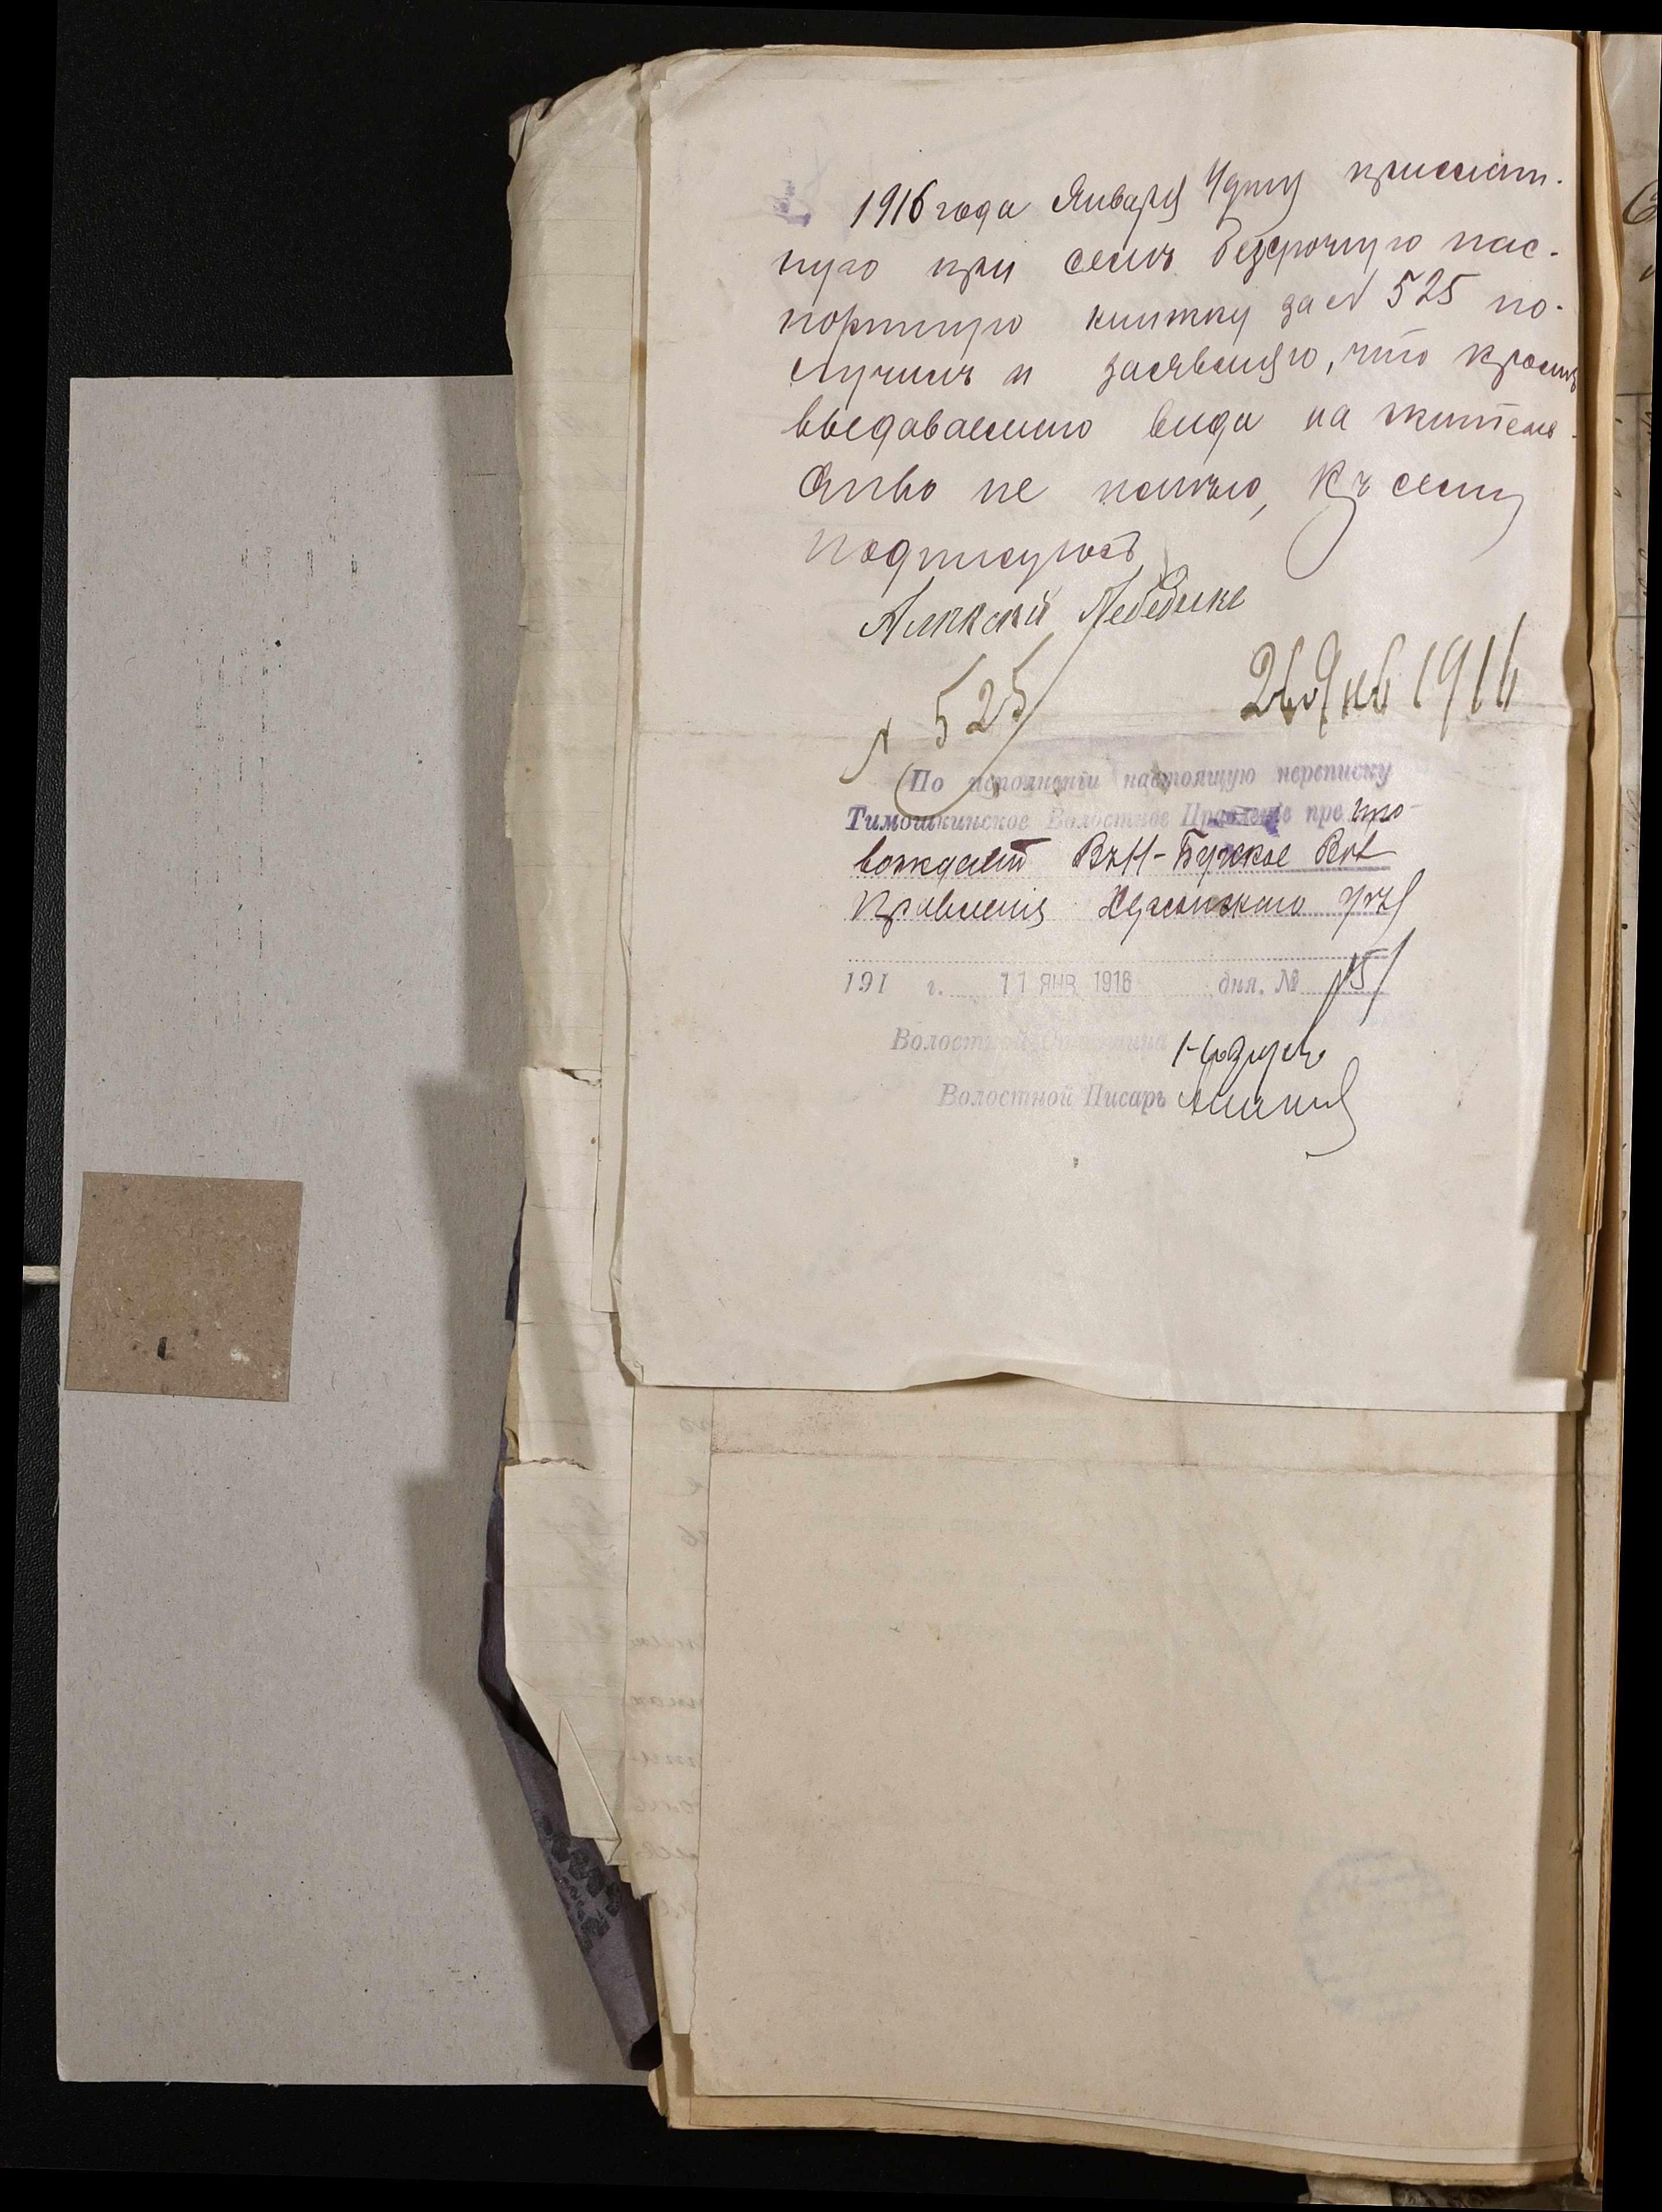 1916 года Января 4 дня прислан-
ную при семъ безсрочную пас-
портную книжку за № 525 по-
лучилъ и заявляю, что кромѣ
выдаваемаго вида на житель-
ство не имѣю, къ сему
подписуюсь
Алѣксѣй Лебедике
№ 525
26 Янв 1916
По исполненіи настоящую переписку
Тимошкинское Волостное Правленіе пре про-
вождаетъ Въ Н-Бугское Вол
Правленіе Херсонскаго уѣз
191 г. 11 ЯНВ 1916 дня. № 151
Волостной Старшина
Волостной Писарь